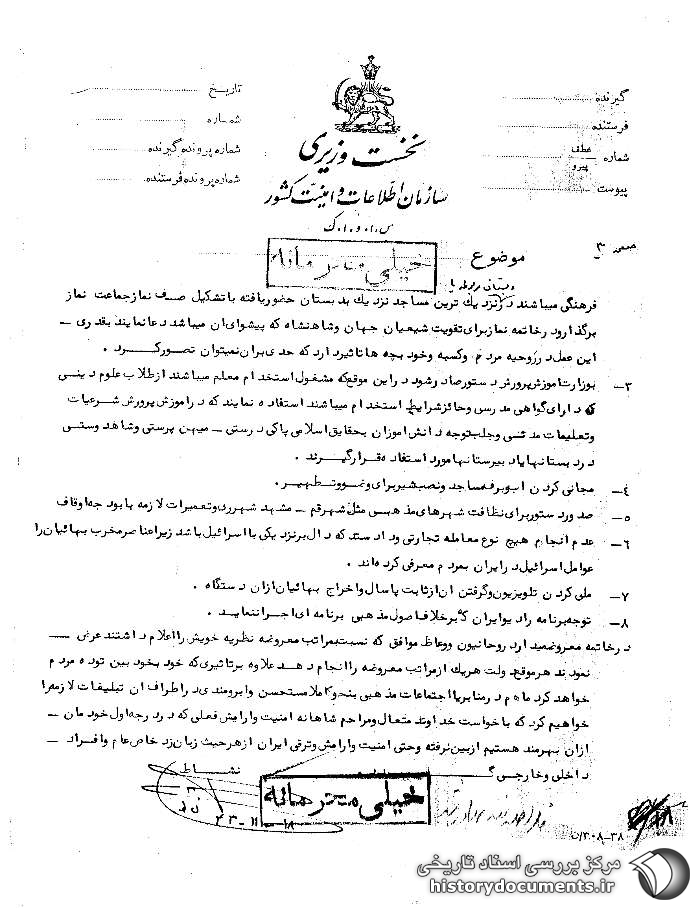 گیرنده
فرستنده
شماره عطف پیرو
پیوست
تاریخ
شماره
شماره پرونده گیرنده
شماره پرونده فرستنده
نخست وزیری
سازمان اطلاعات و امنیت کشور
س.ا.و.ا.ک
صفحه ۳
موضوع
خیلی محرمانه
فرهنگی میباشند در نزدیك ترین مساجد نزدیك بدبستان حضوریافته باتشکیل صف نمازجماعت نماز
برگذارودرخاتمه نمازبرای تقویت شیعیان جهان وشاهنشاه که پیشوای آن میباشد دعانمایند بقدری ــ
این عمل درروحیه مردم وکسبه وخود بچه هاتاثیردارد که حدی برآن نمیتوان تصورکرد .
۳ــ بوزارت آموزش پرورش دستورصادرشود دراین موقع که مشغول استخدام معلم میباشند ازطلاب علوم دینی
که دارای گواهی مدرسی وحائزشرایط استخدام میباشند استفاده نمایند که درآموزش پرورش شرعیات
وتعلیمات مدنی وجلب توجه دانش آموزان بحقایق اسلامی پاکی درستی ــ میهن پرستی وشاهدوستی
دردبستانهایادبیرستانهامورد استفاده قرارگیرند .
٤ــ مجانی کردن آب وبرق مساجد ونصب شیربرای وضووتطهیر .
٥ــ صدوردستوربرای نظافت شهرهای مذهبی مثل شهرقم ــ مشهد شهرری وتعمیرات لازمه بابودجه اوقاف
٦ــ عدم انجام هیچ نوع معامله تجارتی وداد ستد که دال برنزدیکی بااسرائیل باشد زیراعناصرمخرب بهائیان را
عوامل اسرائیل درایران بمردم معرفی کرده اند .
۷ــ ملی کردن تلویزیون وگرفتن آن ازثابت پاسال واخراج بهائیان ازآن دستگاه .
۸ــ توجه برنامه رادیوایران که برخلاف اصول مذهبی برنامه ای اجراننماید .
درخاتمه معروضمیدارد روحانیون ووعاظ موافق که نسبت بمراتب معروضه نظریه خویش رااعلام داشتند عرض ــ
نمودند هرموقع دولت هریك ازمراتب معروضه راانجام دهد علاوه برتاثیری که خود بخود بین توده مردم
خواهد کرد ماهم درمنابریااجتماعات مذهبی بنحوکاملا مستحسن وآبرومندی دراطراف آن تبلیغات لازمه را
خواهیم کرد که باخواست خداوند متعال ومراحم شاهانه امنیت وآرامش فعلی که دردرجه اول خودمان ــ
ازآن بهرمند هستیم ازبین نرفته وحتی امنیت وآرامش وترقی ایران ازهرحیث زبان زد خاص وعام وافراد ــ
داخلی وخارجی گ
نشاط
خیلی محرمانه
مرکز بررسی اسناد تاریخی
historydocuments.ir